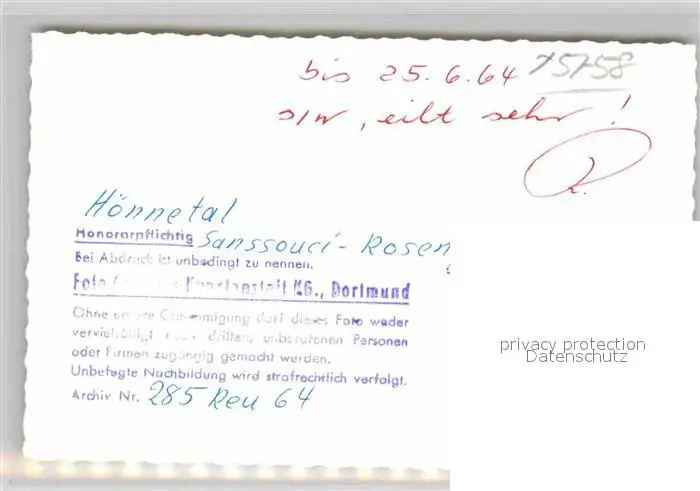 bis 25.6.64 75758
s/w, eilt sehr!
R.
Hönnetal
Honorarpflichtig Sanssouci - Rosen
Bei Abdruck ist unbedingt zu nennen.
Foto Kunstanstalt KG., Dortmund
Ohne unsere Genehmigung darf dieses Foto weder
vervielfältigt noch dritten, unberufenen Personen
oder Firmen zugängig gemacht werden.
Unbefugte Nachbildung wird strafrechtlich verfolgt.
Archiv Nr. 285 Reu 64
privacy protection
Datenschutz